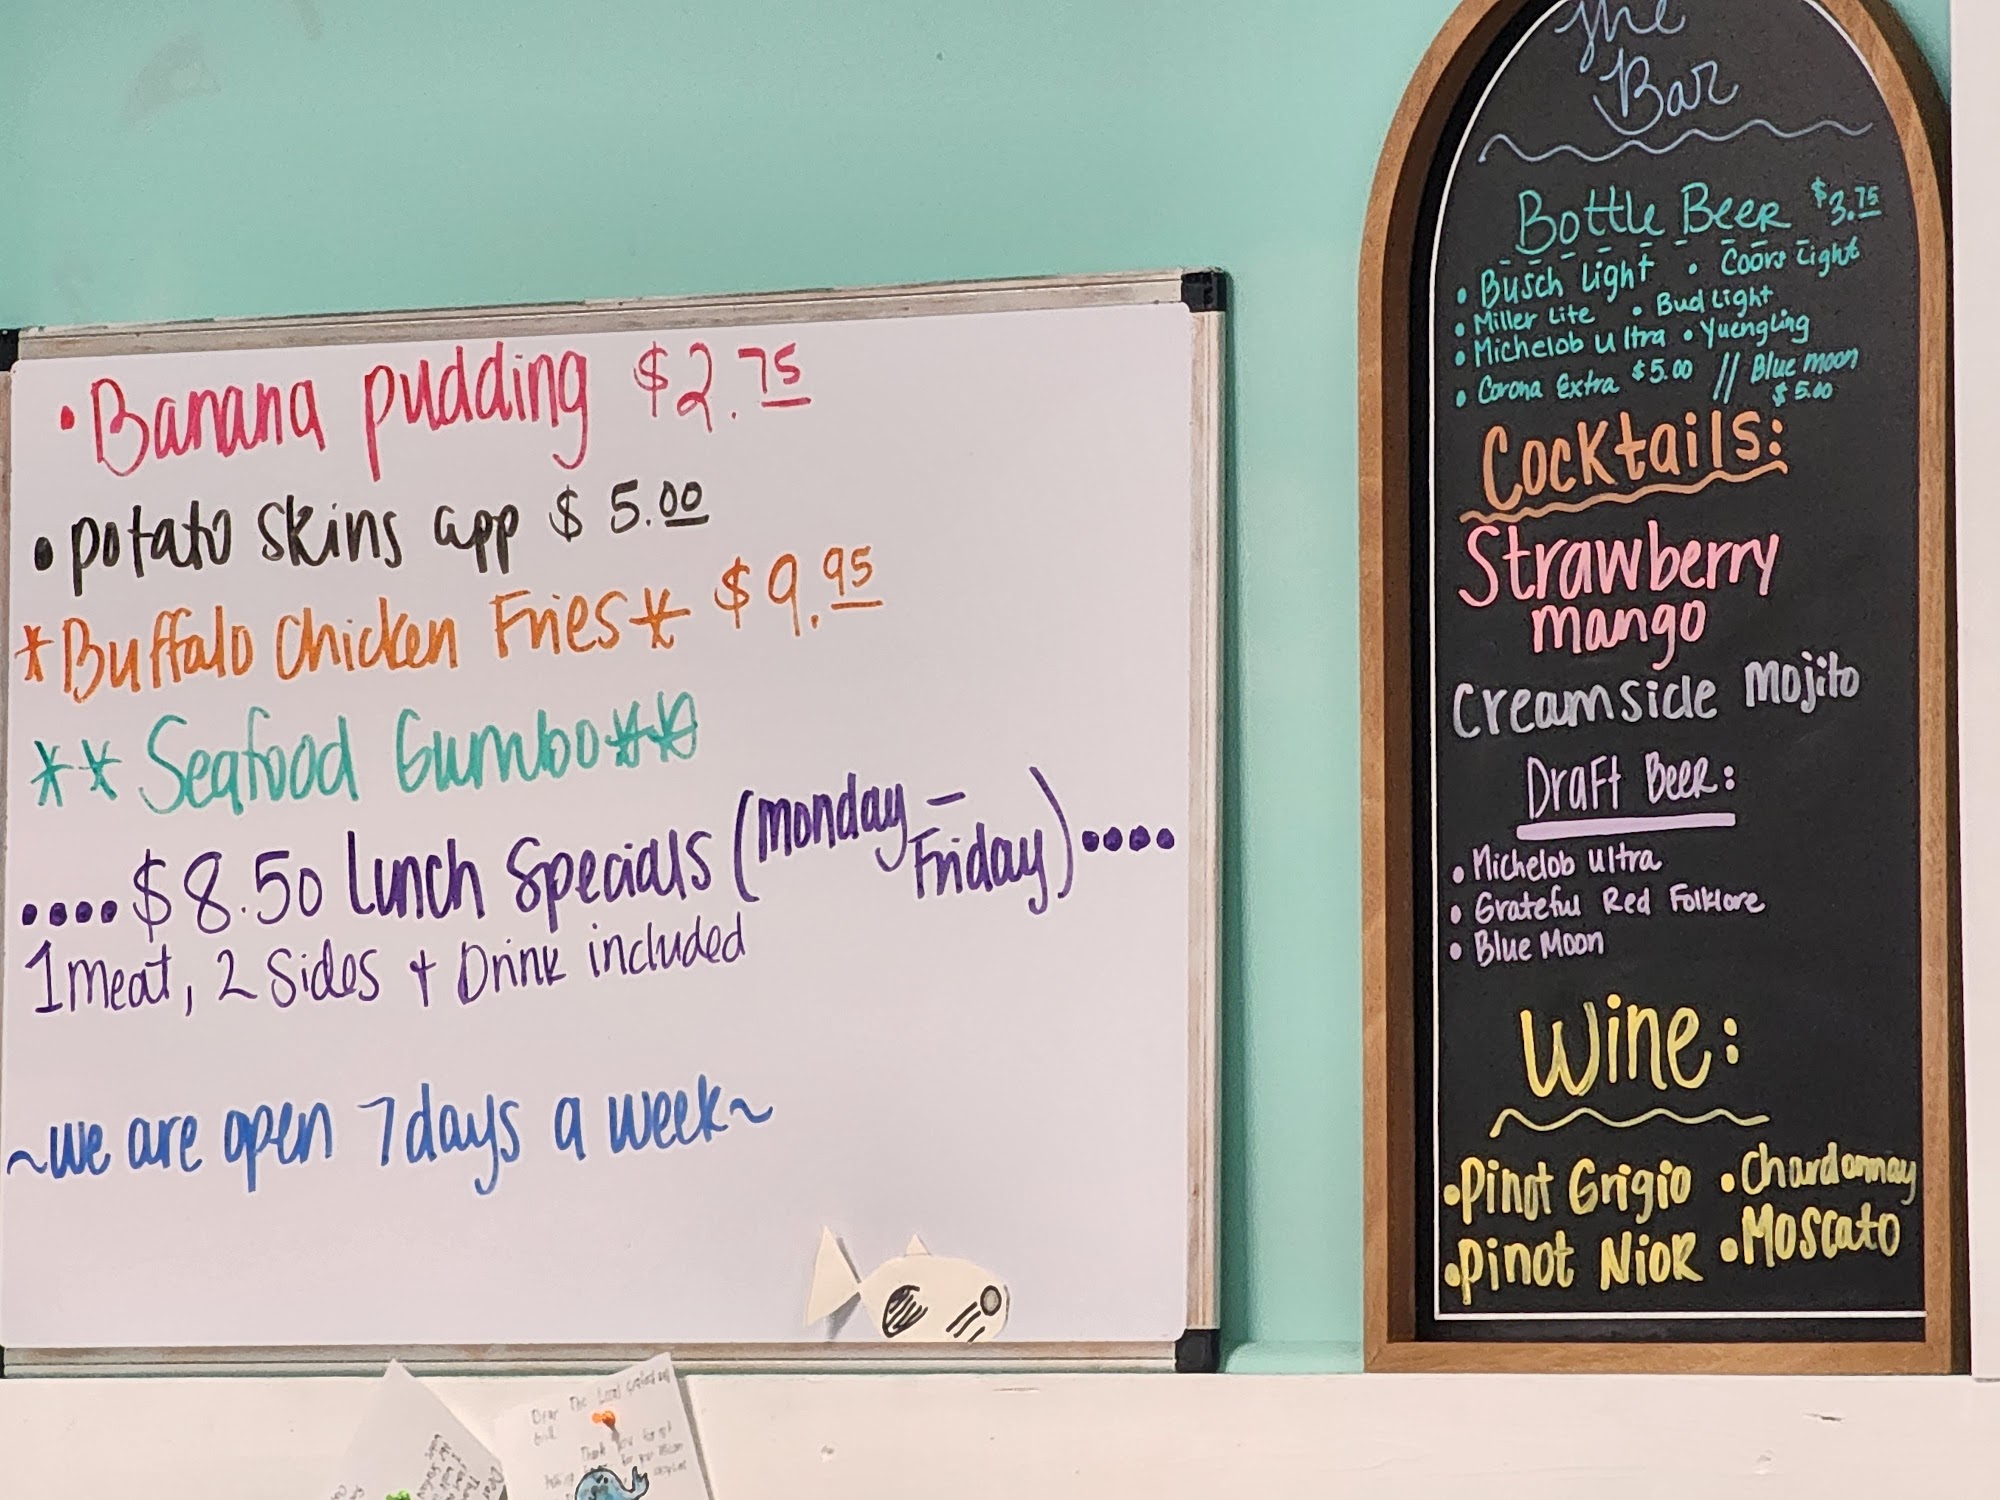 • Banana pudding $2.75
• potato skins app $5.00
* Buffalo Chicken Fries * $9.95
** Seafood Gumbo **
....$8.50 Lunch Specials (Monday - Friday)....
1 meat, 2 Sides + Drink included
~we are open 7 days a week~
The
Bar
Bottle Beer $3.75
• Busch Light • Coors Light
• Miller Lite • Bud Light
• Michelob Ultra • Yuengling
• Corona Extra $5.00 // Blue moon $5.00
Cocktails:
Strawberry
mango
Creamsicle Mojito
Draft Beer:
• Michelob Ultra
• Grateful Red Folklore
• Blue Moon
Wine:
• Pinot Grigio • Chardonnay
• Pinot Nior • Moscato
Dear The Local
Thank you for